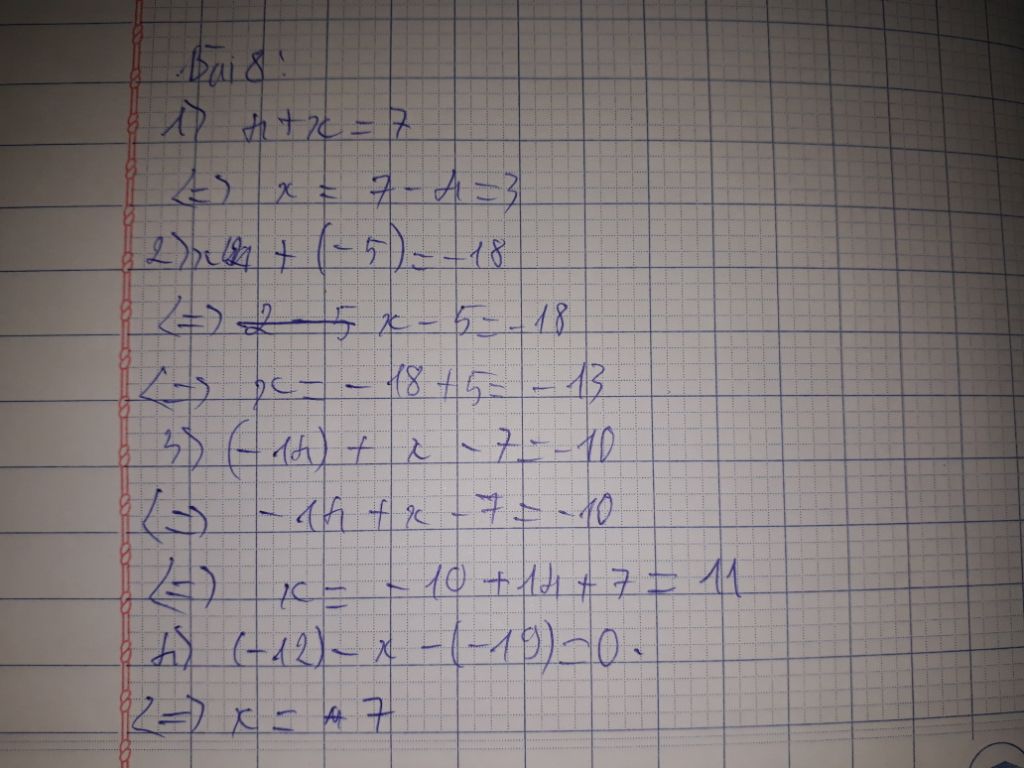 Bài 8:
1) 4 + x = 7
<=> x = 7 - 4 = 3
2) x + (-5) = -18
<=> x - 5 = -18
<=> x = -18 + 5 = -13
3) (-14) + x - 7 = -10
<=> -14 + x - 7 = -10
<=> x = -10 + 14 + 7 = 11
4) (-12) - x - (-19) = 0.
<=> x = 7